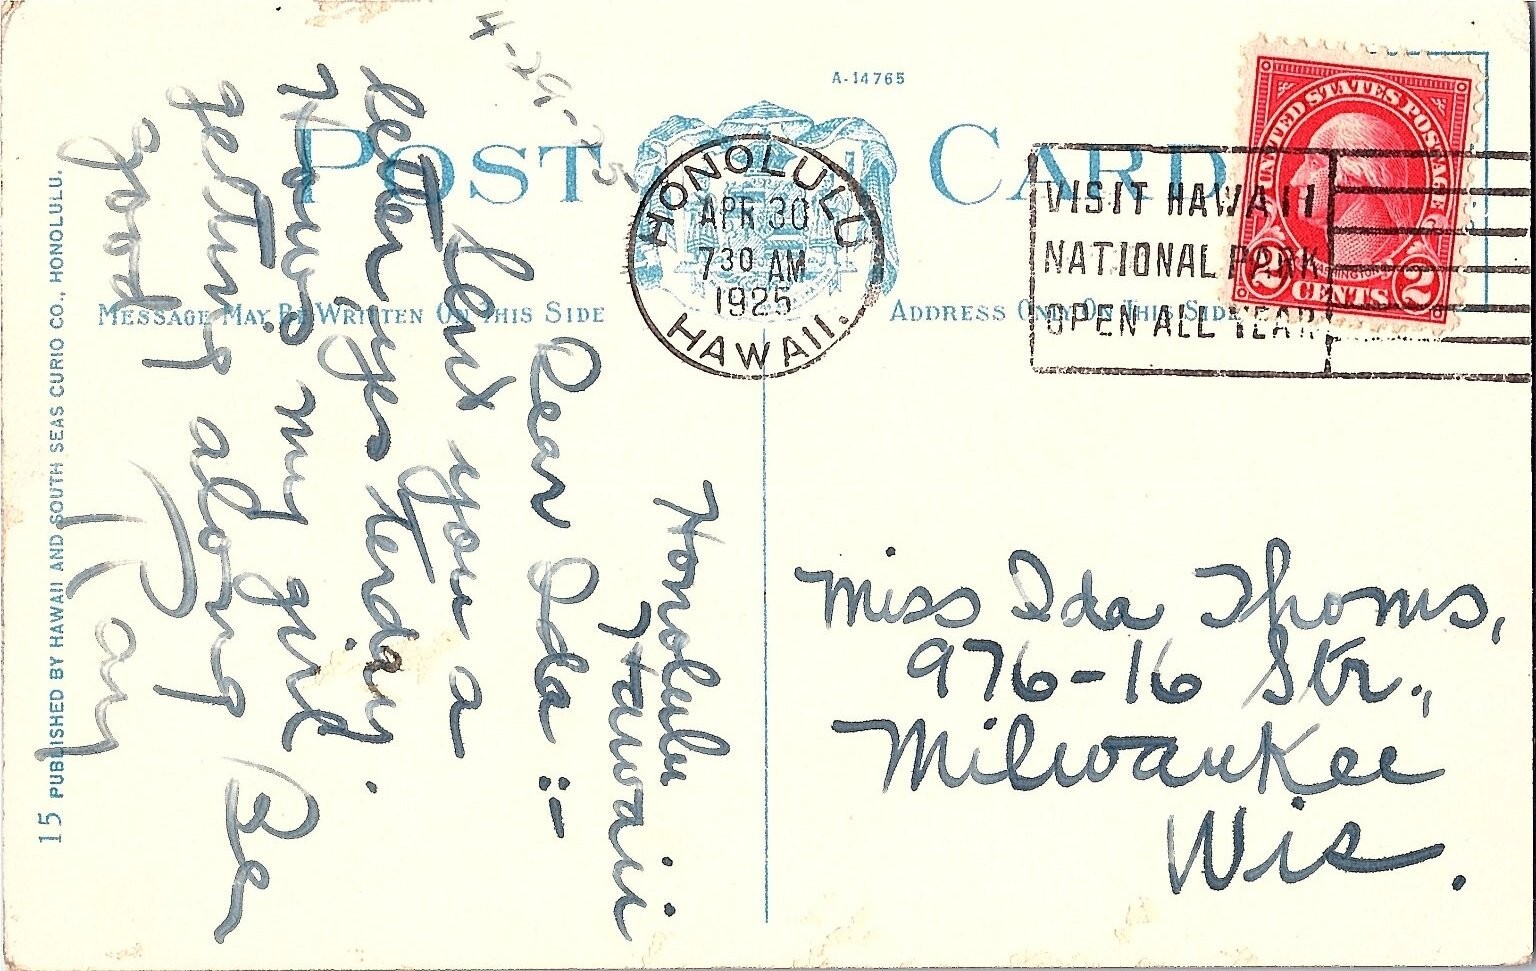 A-14765
POST CARD
HONOLULU
APR 30
7 30 AM
1925
HAWAII.
VISIT HAWAII
NATIONAL PARK
OPEN ALL YEAR
UNITED STATES POSTAGE
WASHINGTON
2 CENTS 2
MESSAGE MAY BE WRITTEN ON THIS SIDE
ADDRESS ONLY ON THIS SIDE
4-29-25-
Honolulu
Hawaii
Dear Ida :-
Sent you a
letter yesterday.
How's my girl
getting along Be
good
Ray
Miss Ida Thoms,
976-16 Str.,
Milwaukee
Wis.
15 PUBLISHED BY HAWAII AND SOUTH SEAS CURIO CO., HONOLULU.